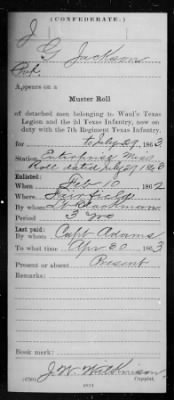 (CONFEDERATE.)
J
J G Jackson
Pvt.
Appears on a
Muster Roll
of detached men belonging to Waul's Texas
Legion and the 2d Texas Infantry, now on
duty with the 7th Regiment Texas Infantry,
for to July 29, 1863
Station Enterprise Miss
Roll dated July 29 1863
Enlisted:
When Feb 10, 1862
Where Fairfield
By whom Lt Blackman
Period 3 yrs
Last paid:
By whom Capt Adams
To what time Apr 30, 1863
Present or absent Present
Remarks:
Book mark:
J. W. Wilkinson
Copyist.